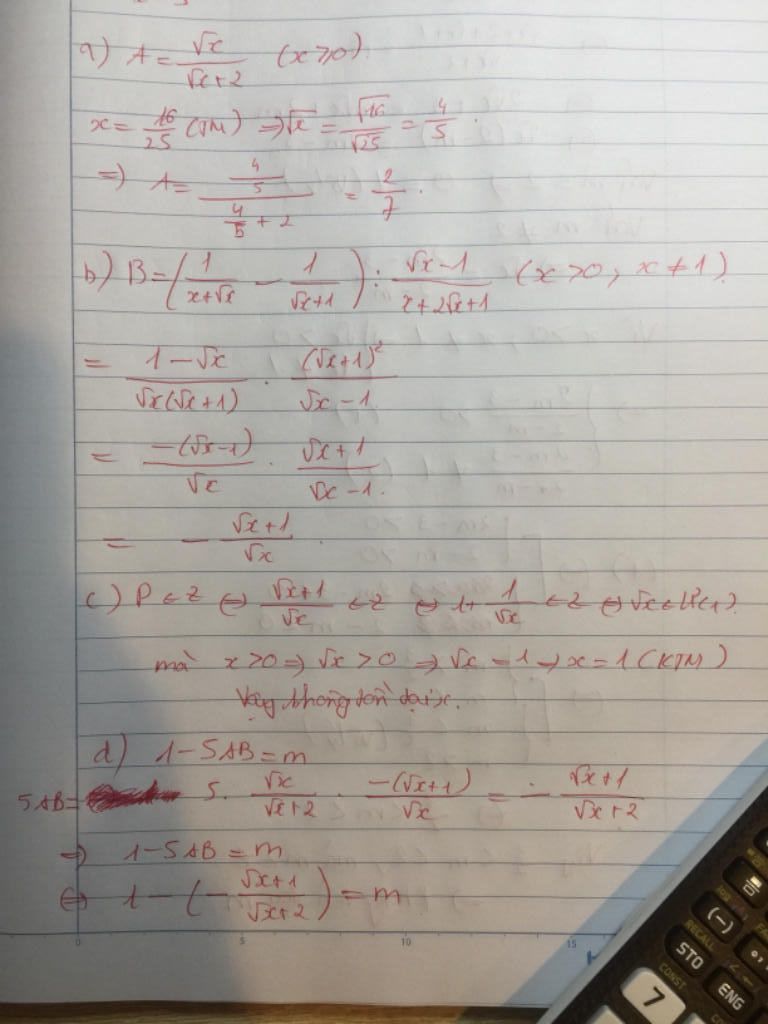 a) A = √x / (√x + 2) (x ≥ 0)
x = 16/25 (TM) => √x = √16/√25 = 4/5.
=> A = (4/5) / (4/5 + 2) = 2/7.
b) B = (1/(x+√x) − 1/(√x+1)) : (√x−1)/(x+2√x+1) (x > 0, x ≠ 1).
= (1−√x)/(√x(√x+1)) . (√x+1)²/(√x−1)
= −(√x−1)/√x . (√x+1)/(√x−1).
= − (√x+1)/√x.
c) P ∈ Z ⇔ (√x+1)/√x ∈ Z ⇔ 1 + 1/√x ∈ Z ⇔ √x ∈ Ư(1).
mà x>0 => √x > 0 => √x = 1 → x = 1 (KTM)
Vậy không tồn tại x.
d) 1 − 5AB = m
5AB = 5. √x/(√x+2) . −(√x+1)/√x = − (√x+1)/(√x+2)
=> 1 − 5AB = m
⇔ 1 − (− (√x+1)/(√x+2)) = m
0 5 10 15
RECALL
STO
ENG
CONST
(−)
7